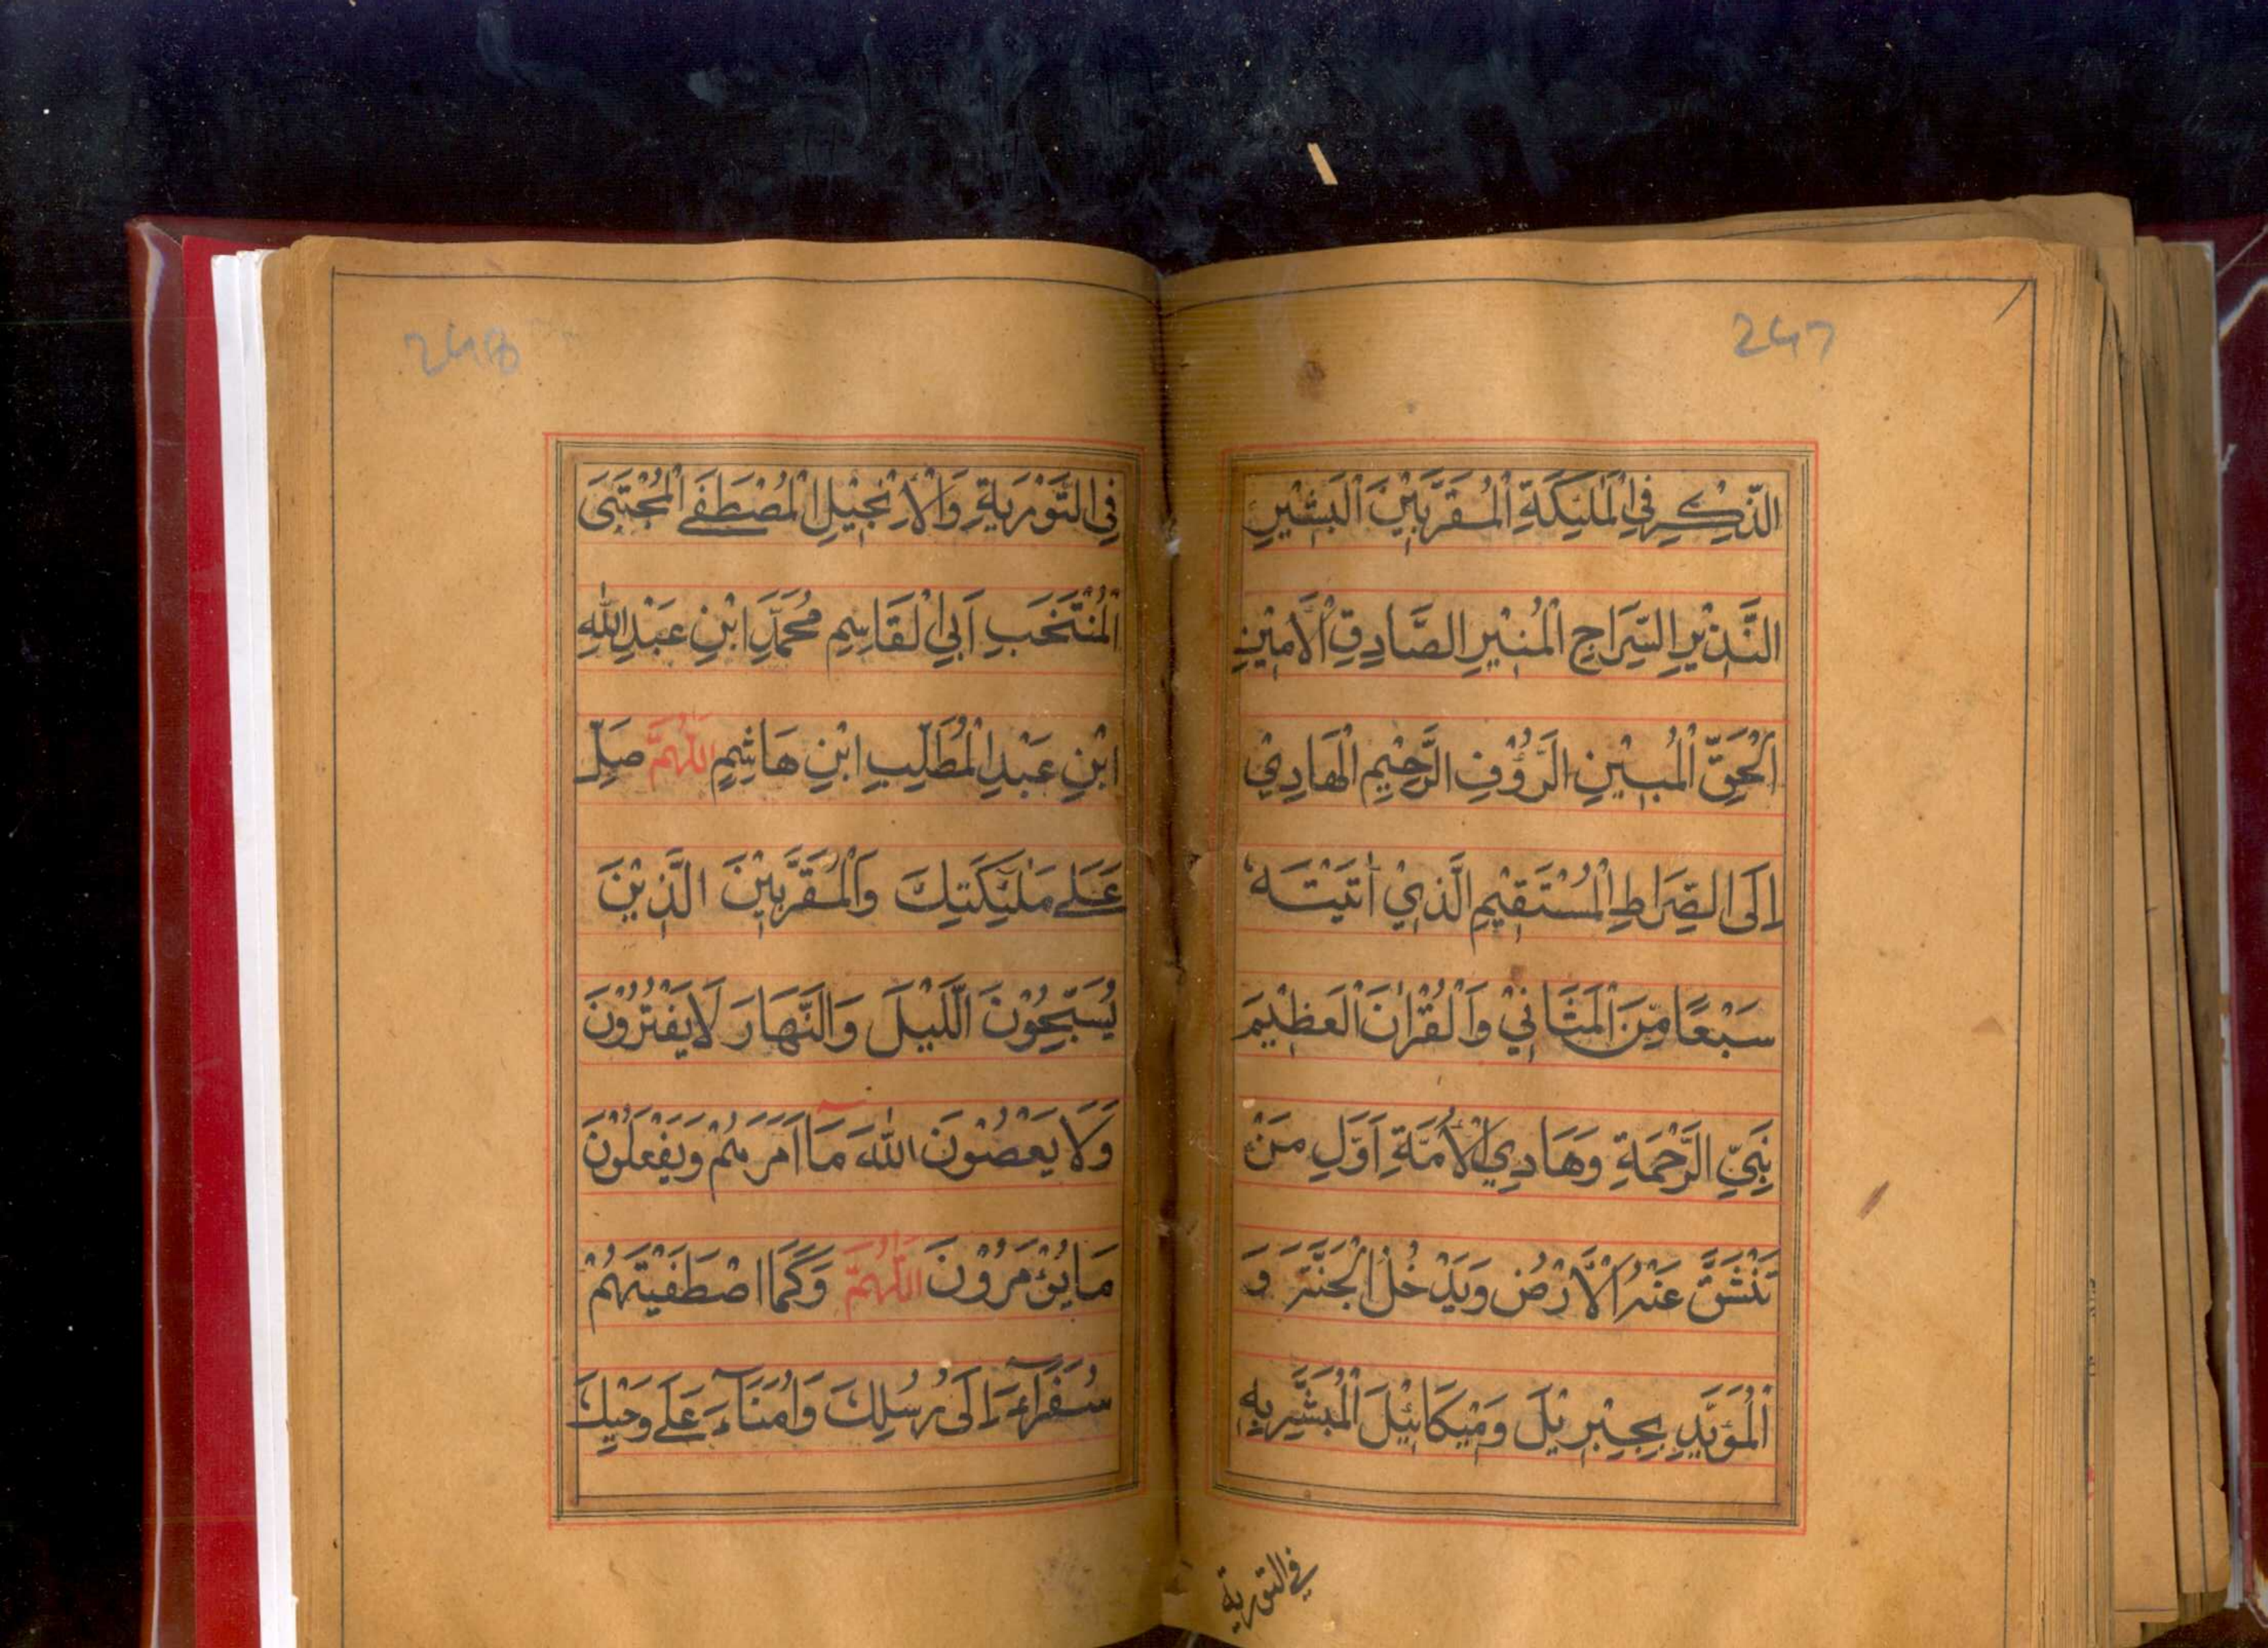 247
الذِّكْرِ فِي الْمَلٰئِكَةِ الْمُقَرَّبِيْنَ الْبَشِيْرِ
النَّذِيْرِ السِّرَاجِ الْمُنِيْرِ الصَّادِقِ الْاَمِيْنِ
الْحَقِّ الْمُبِيْنِ الرَّؤُفِ الرَّحِيْمِ الْهَادِيْ
اِلَى الصِّرَاطِ الْمُسْتَقِيْمِ الَّذِيْ اٰتَيْتَهٗ
سَبْعًا مِّنَ الْمَثَانِيْ وَالْقُرْاٰنَ الْعَظِيْمَ
نَبِيِّ الرَّحْمَةِ وَهَادِي الْاُمَّةِ اَوَّلِ مَنْ
تَنْشَقُّ عَنْهُ الْاَرْضُ وَيَدْخُلُ الْجَنَّةَ وَ
الْمُؤَيَّدِ بِجِبْرِيْلَ وَمِيْكَائِيْلَ الْمُبَشَّرِ بِهٖ
فى التورية
248
فِي التَّوْرٰيةِ وَالْاِنْجِيْلِ الْمُصْطَفَے الْمُجْتَبَى
الْمُنْتَخَبِ اَبِي الْقَاسِمِ مُحَمَّدِ ابْنِ عَبْدِ اللّٰهِ
ابْنِ عَبْدِ الْمُطَّلِبِ ابْنِ هَاشِمٍ اَللّٰهُمَّ صَلِّ
عَلَے مَلٰئِكَتِكَ وَالْمُقَرَّبِيْنَ الَّذِيْنَ
يُسَبِّحُوْنَ اللَّيْلَ وَالنَّهَارَ لَا يَفْتُرُوْنَ
وَلَا يَعْصُوْنَ اللّٰهَ مَآ اَمَرَهُمْ وَيَفْعَلُوْنَ
مَا يُؤْمَرُوْنَ اَللّٰهُمَّ وَكَمَا اصْطَفَيْتَهُمْ
سُفَرَآءَ اِلَى رُسُلِكَ وَاُمَنَآءَ عَلَے وَحْيِكَ